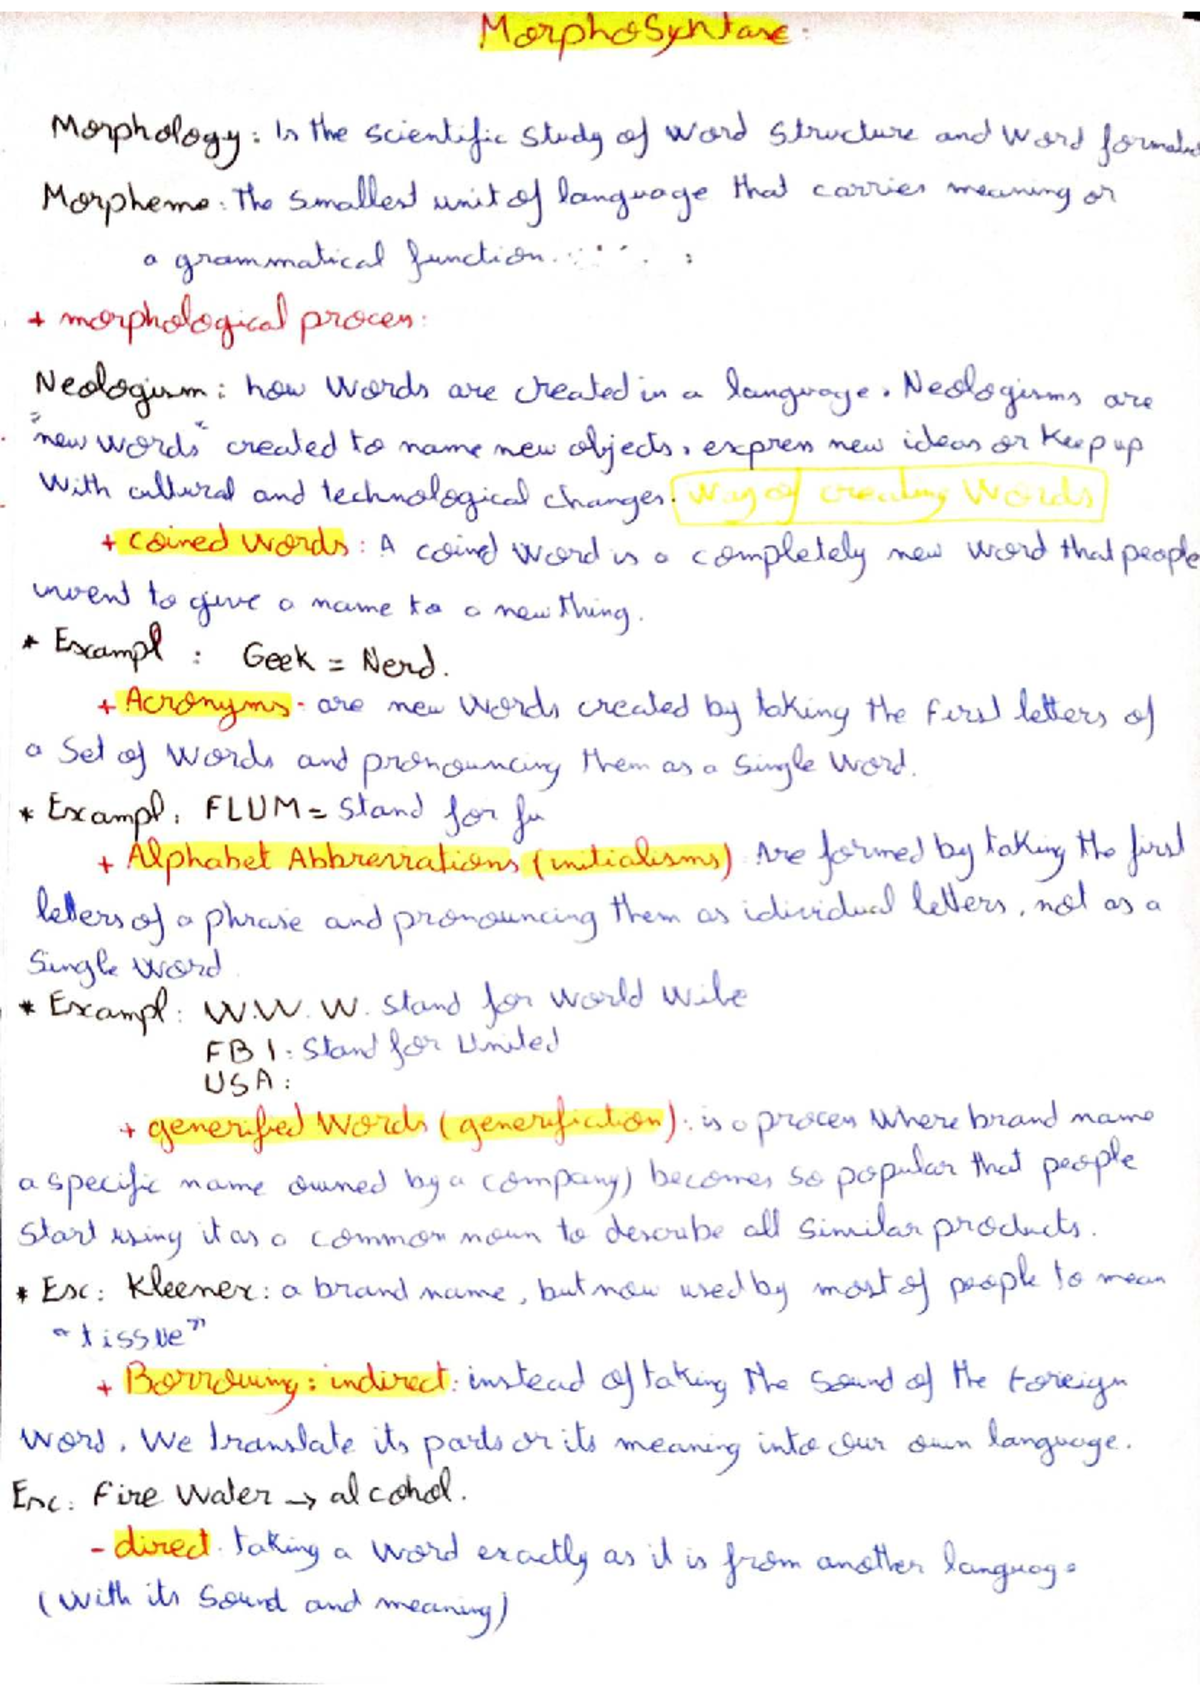 MorphoSyntaxe:
Morphology: Is the scientific study of word structure and word formatio
Morpheme: The smallest unit of language that carries meaning or
a grammatical function.
+ morphological process:
Neologism: how words are created in a language. Neologisms are
"new words" created to name new objects, express new ideas or keep up
with cultural and technological changes. Way of creating words
+ Coined words: A coined word is a completely new word that people
invent to give a name to a new thing.
* Exampl: Geek = Nerd.
+ Acronyms - are new words created by taking the first letters of
a set of words and pronouncing them as a single word.
* Exampl: FLUM = stand for fu
+ Alphabet Abbreviations (initialisms) Are formed by taking the first
letters of a phrase and pronouncing them as idividual letters, not as a
single word
* Exampl: W.W.W. stand for world wibe
FBI: stand for United
USA:
+ generified words (generifiction): is a process where brand name
a specific name owned by a company) becomes so popular that people
start using it as a common noun to describe all similar products.
* Ex: Kleenex: a brand name, but now used by most of people to mean
"tissue"
+ Borrowing: indirect: instead of taking the sound of the foreign
word, we translate its parts or its meaning into our own language.
Ex: Fire Water → alcohol.
- direct. taking a word exactly as it is from another language
(with its sound and meaning)